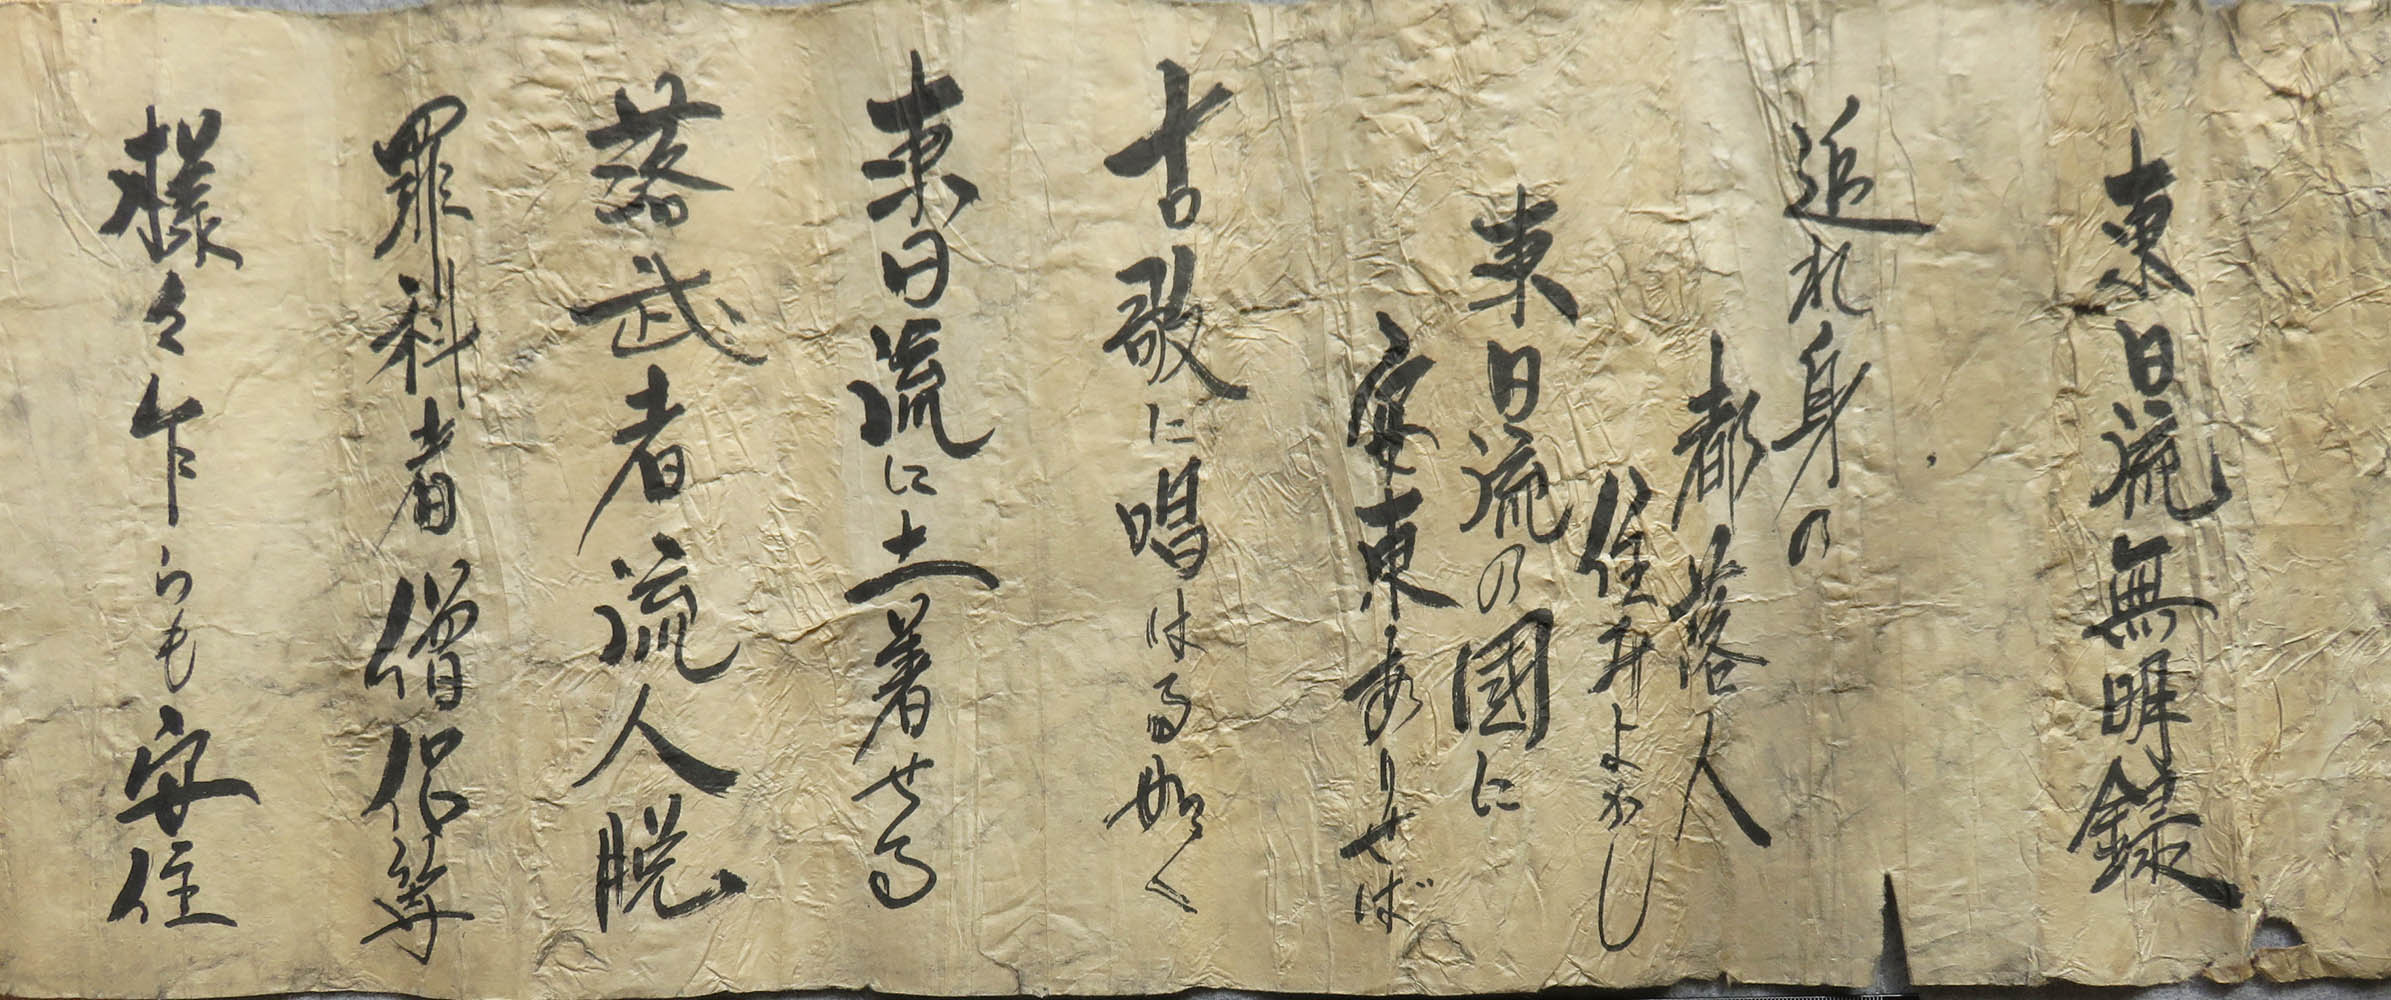 東日流無明録
追れ身の
都落人
住みよかし
東日流の國に
安東ありせば
古歌に唱はる如く
東日流に土着せる
落武者流人脱
罪科者僧侶等
様々乍らも安住